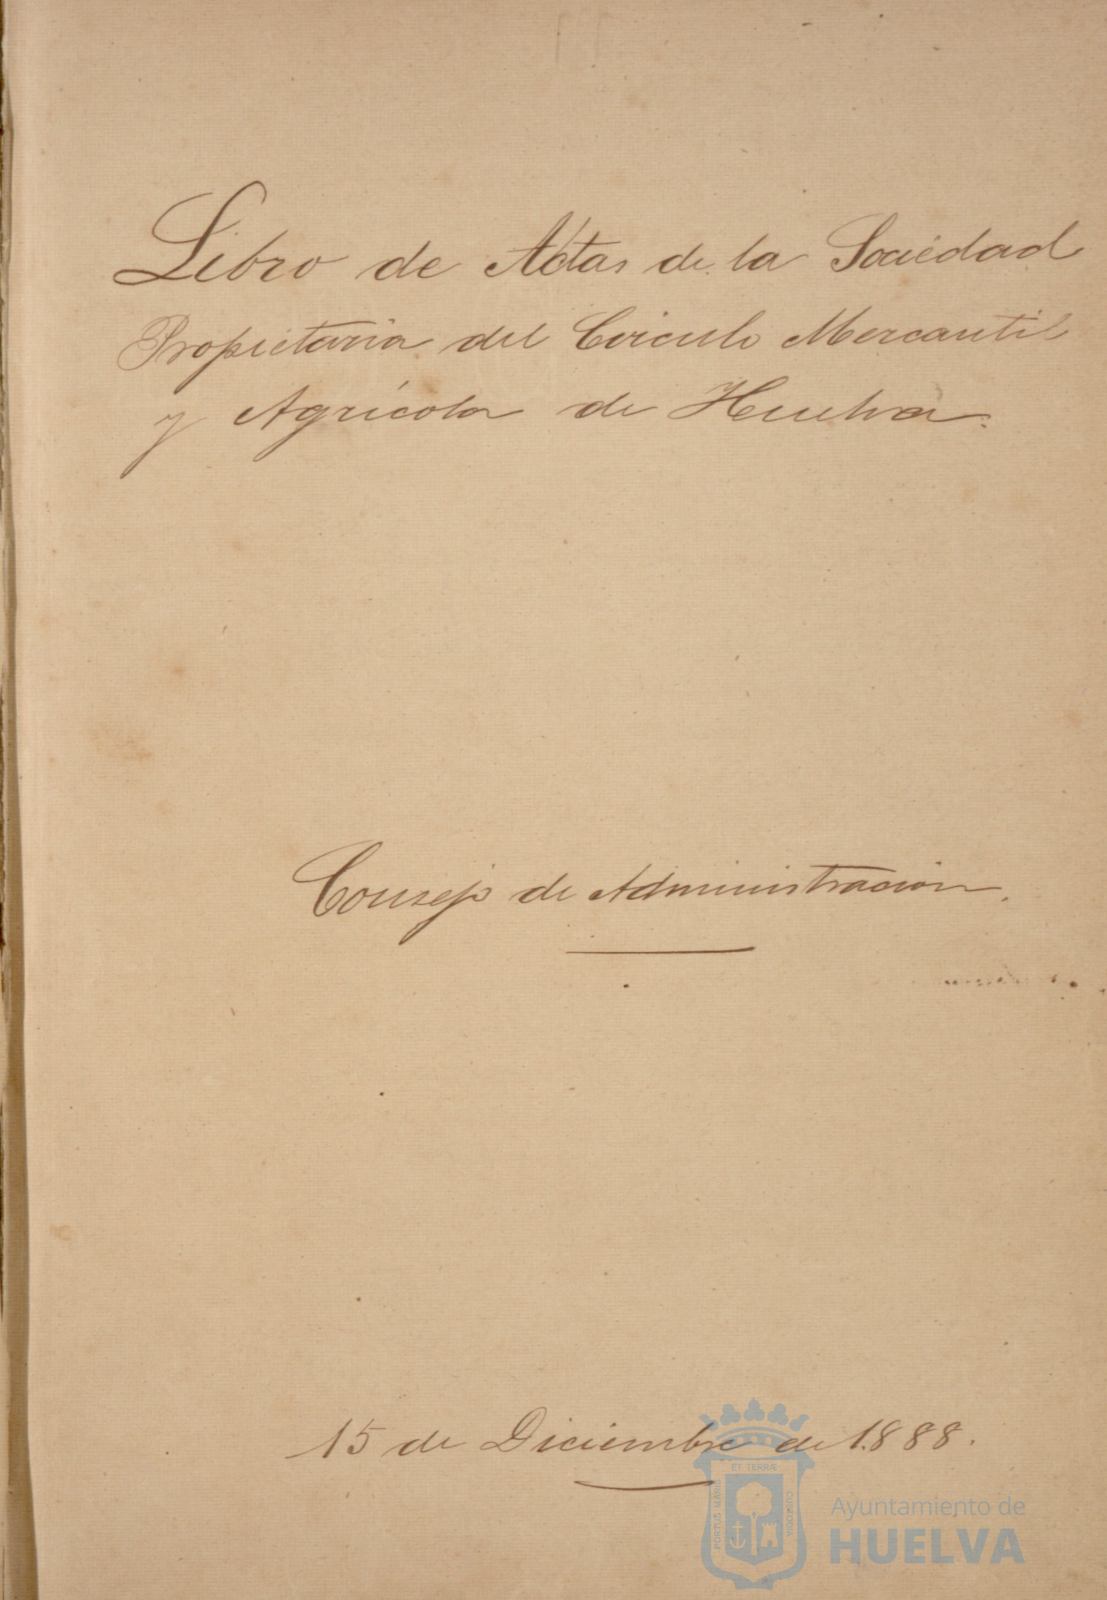 Libro de Actas de la Sociedad
Propietaria del Circulo Mercantil
y Agrícola de Huelva.
Consejo de Administración.
15 de Diciembre de 1.888.
ET TERRÆ
PORTUS MARIS
CUSTODIA
Ayuntamiento de
HUELVA